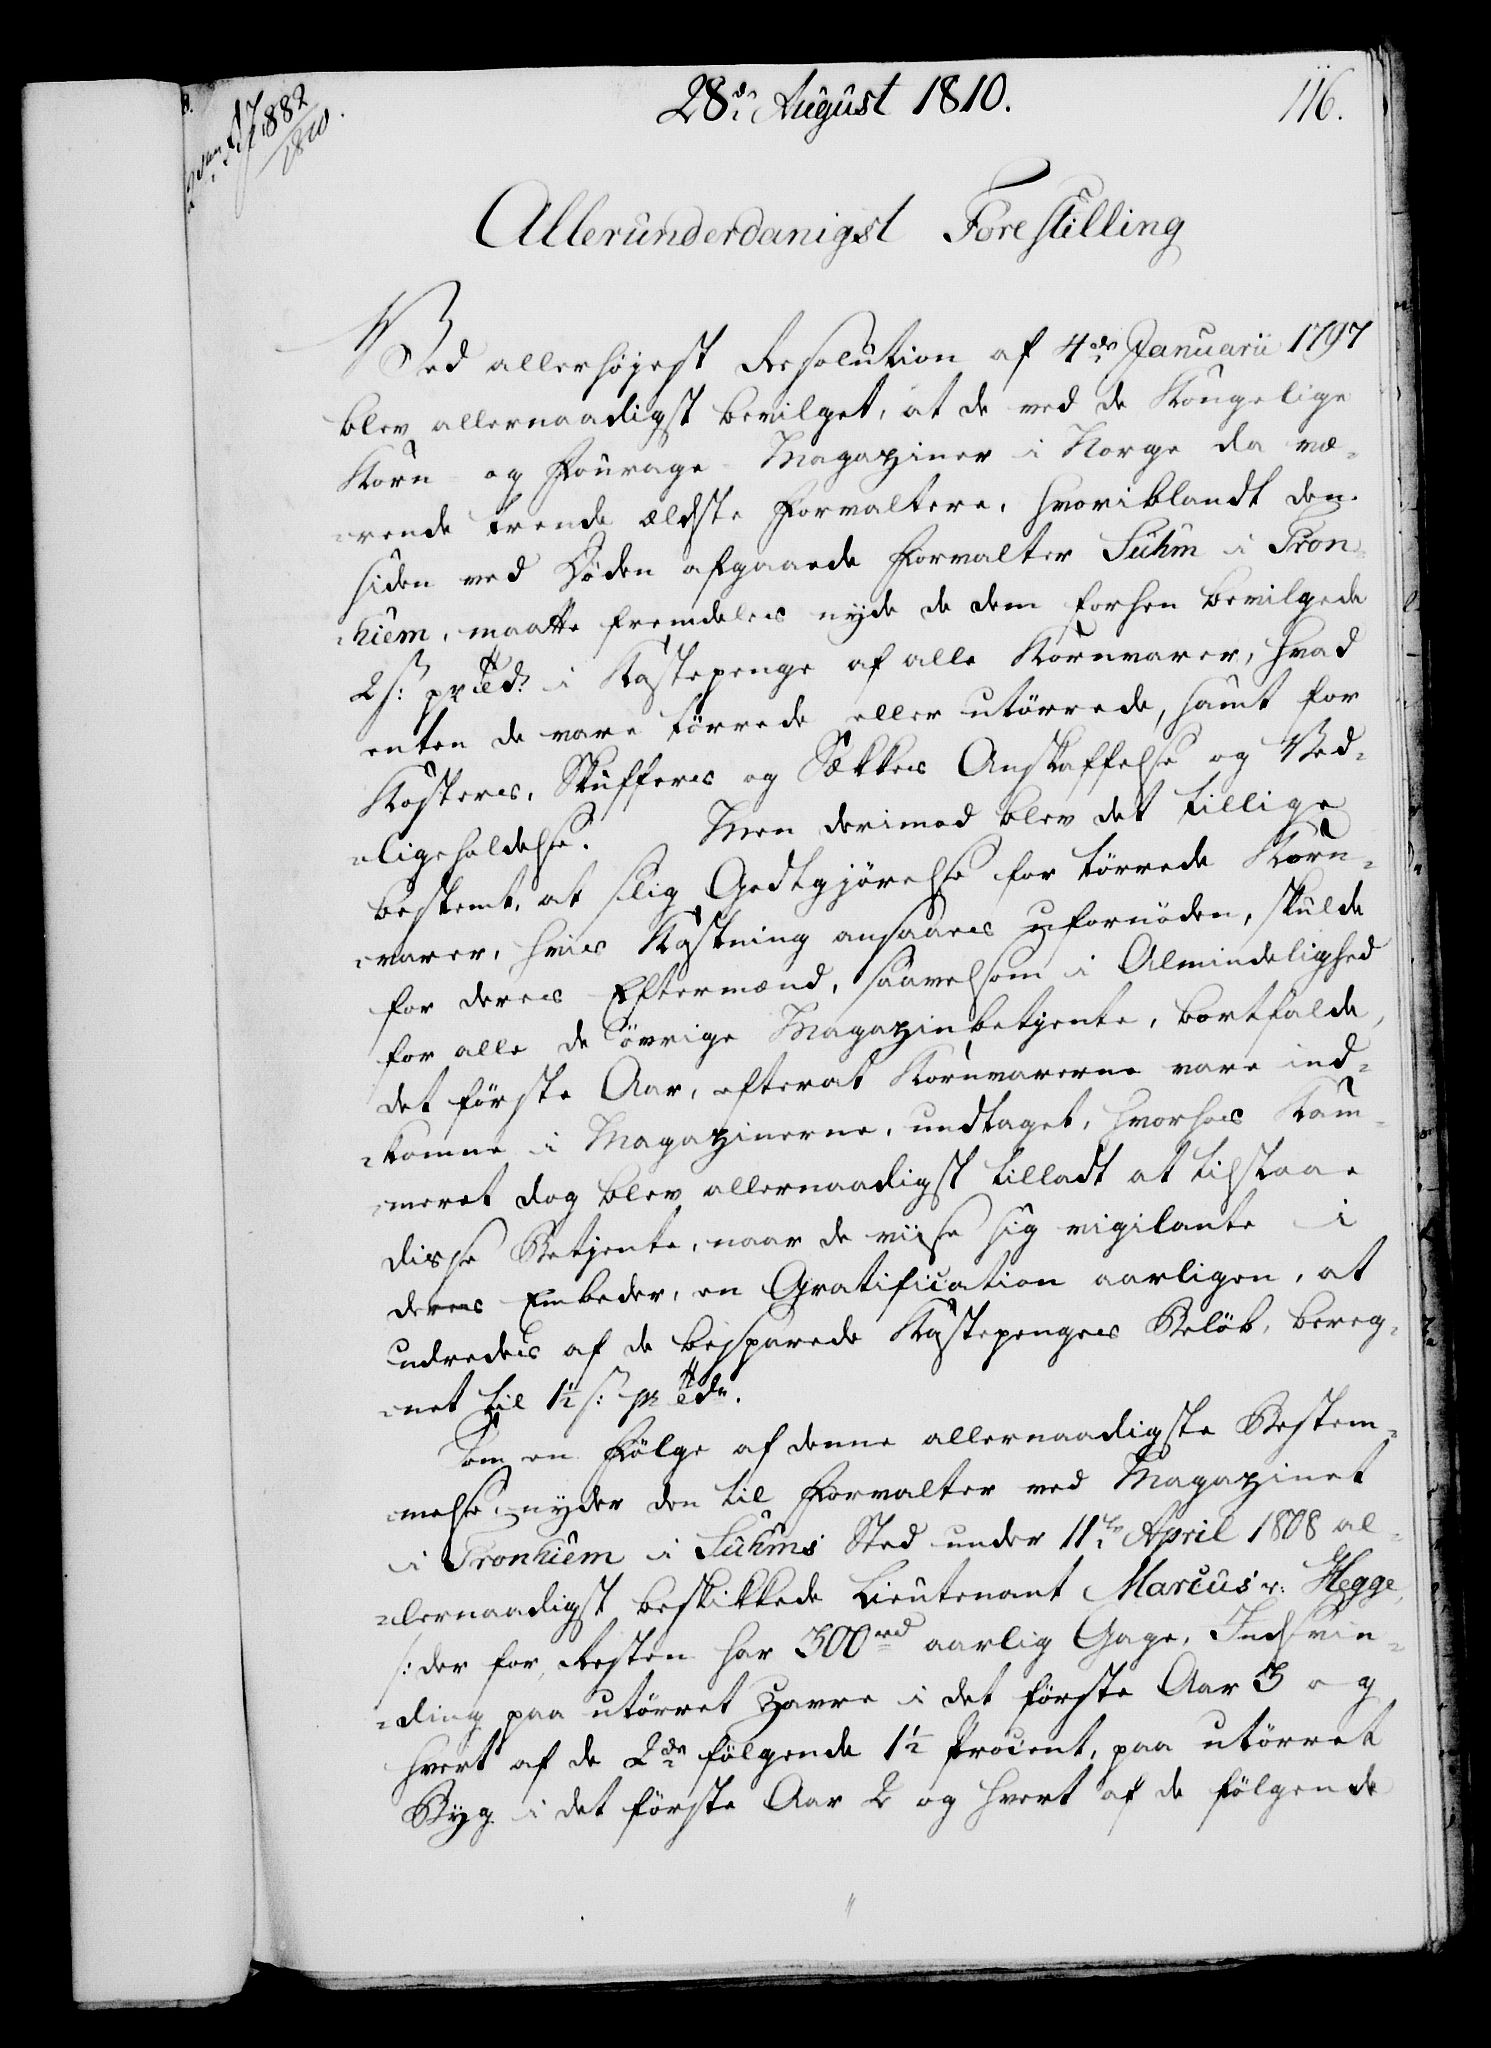 28de August 1810.
116.
1882
1810.
Allerunderdanigst Forestilling
Ved allerhøjest Resolution af 4de Januarii 1797
blev allernaadigst bevilget, at de ved de Kongelige
Korn- og Fourage-Magaziner i Norge da væ-
-rende trende ældste Forvaltere, hvoriblandt den
siden ved Døden afgaaede Forvalter Suhm i Tron-
-hiem, maatte fremdeles nyde de dem forhen bevilgede
2 s: pr Td: i Kastepenge af alle Kornvarer, hvad
enten de vare tørrede eller utørrede, samt for
Kosteres, Skufferes og Sækkes Anskaffelse og Ved-
-ligeholdelse. Men derimod blev det tillige
bestemt, at slig Godtgjørelse for tørrede Korn-
-varer, hvis Kastning ansaaes ufornøden, skulde
for deres Eftermænd, saavelsom i Almindelighed
for alle de øvrige Magazinbetjente, bortfalde,
det første Aar, efterat Kornvarerne vare ind-
-komne i Magazinerne, undtaget, hvorhos Kam-
-meret dog blev allernaadigst tilladt at tilstaae
disse Betjente, naar de viise sig vigilante i
deres Embeder, en Gratification aarligen, at
udredes af de besparede Kastepenges Beløb, bereg-
-net til 1½ s: pr Tde.
Som en Følge af denne allernaadigste Bestem-
-melse, nyder den til Forvalter ved Magazinet
i Tronhiem i Suhms Sted under 11te April 1808 al-
-lernaadigst beskikkede Lieutenant Marcus v: Hegge,
/: der for Resten har 300 rd aarlig Gage, Indsvin-
-ding paa utørret Havre i det første Aar 3 og
hvert af de 2de følgende 1½ Procent, paa utørret
Byg i det første Aar 2 og hvert af de følgende